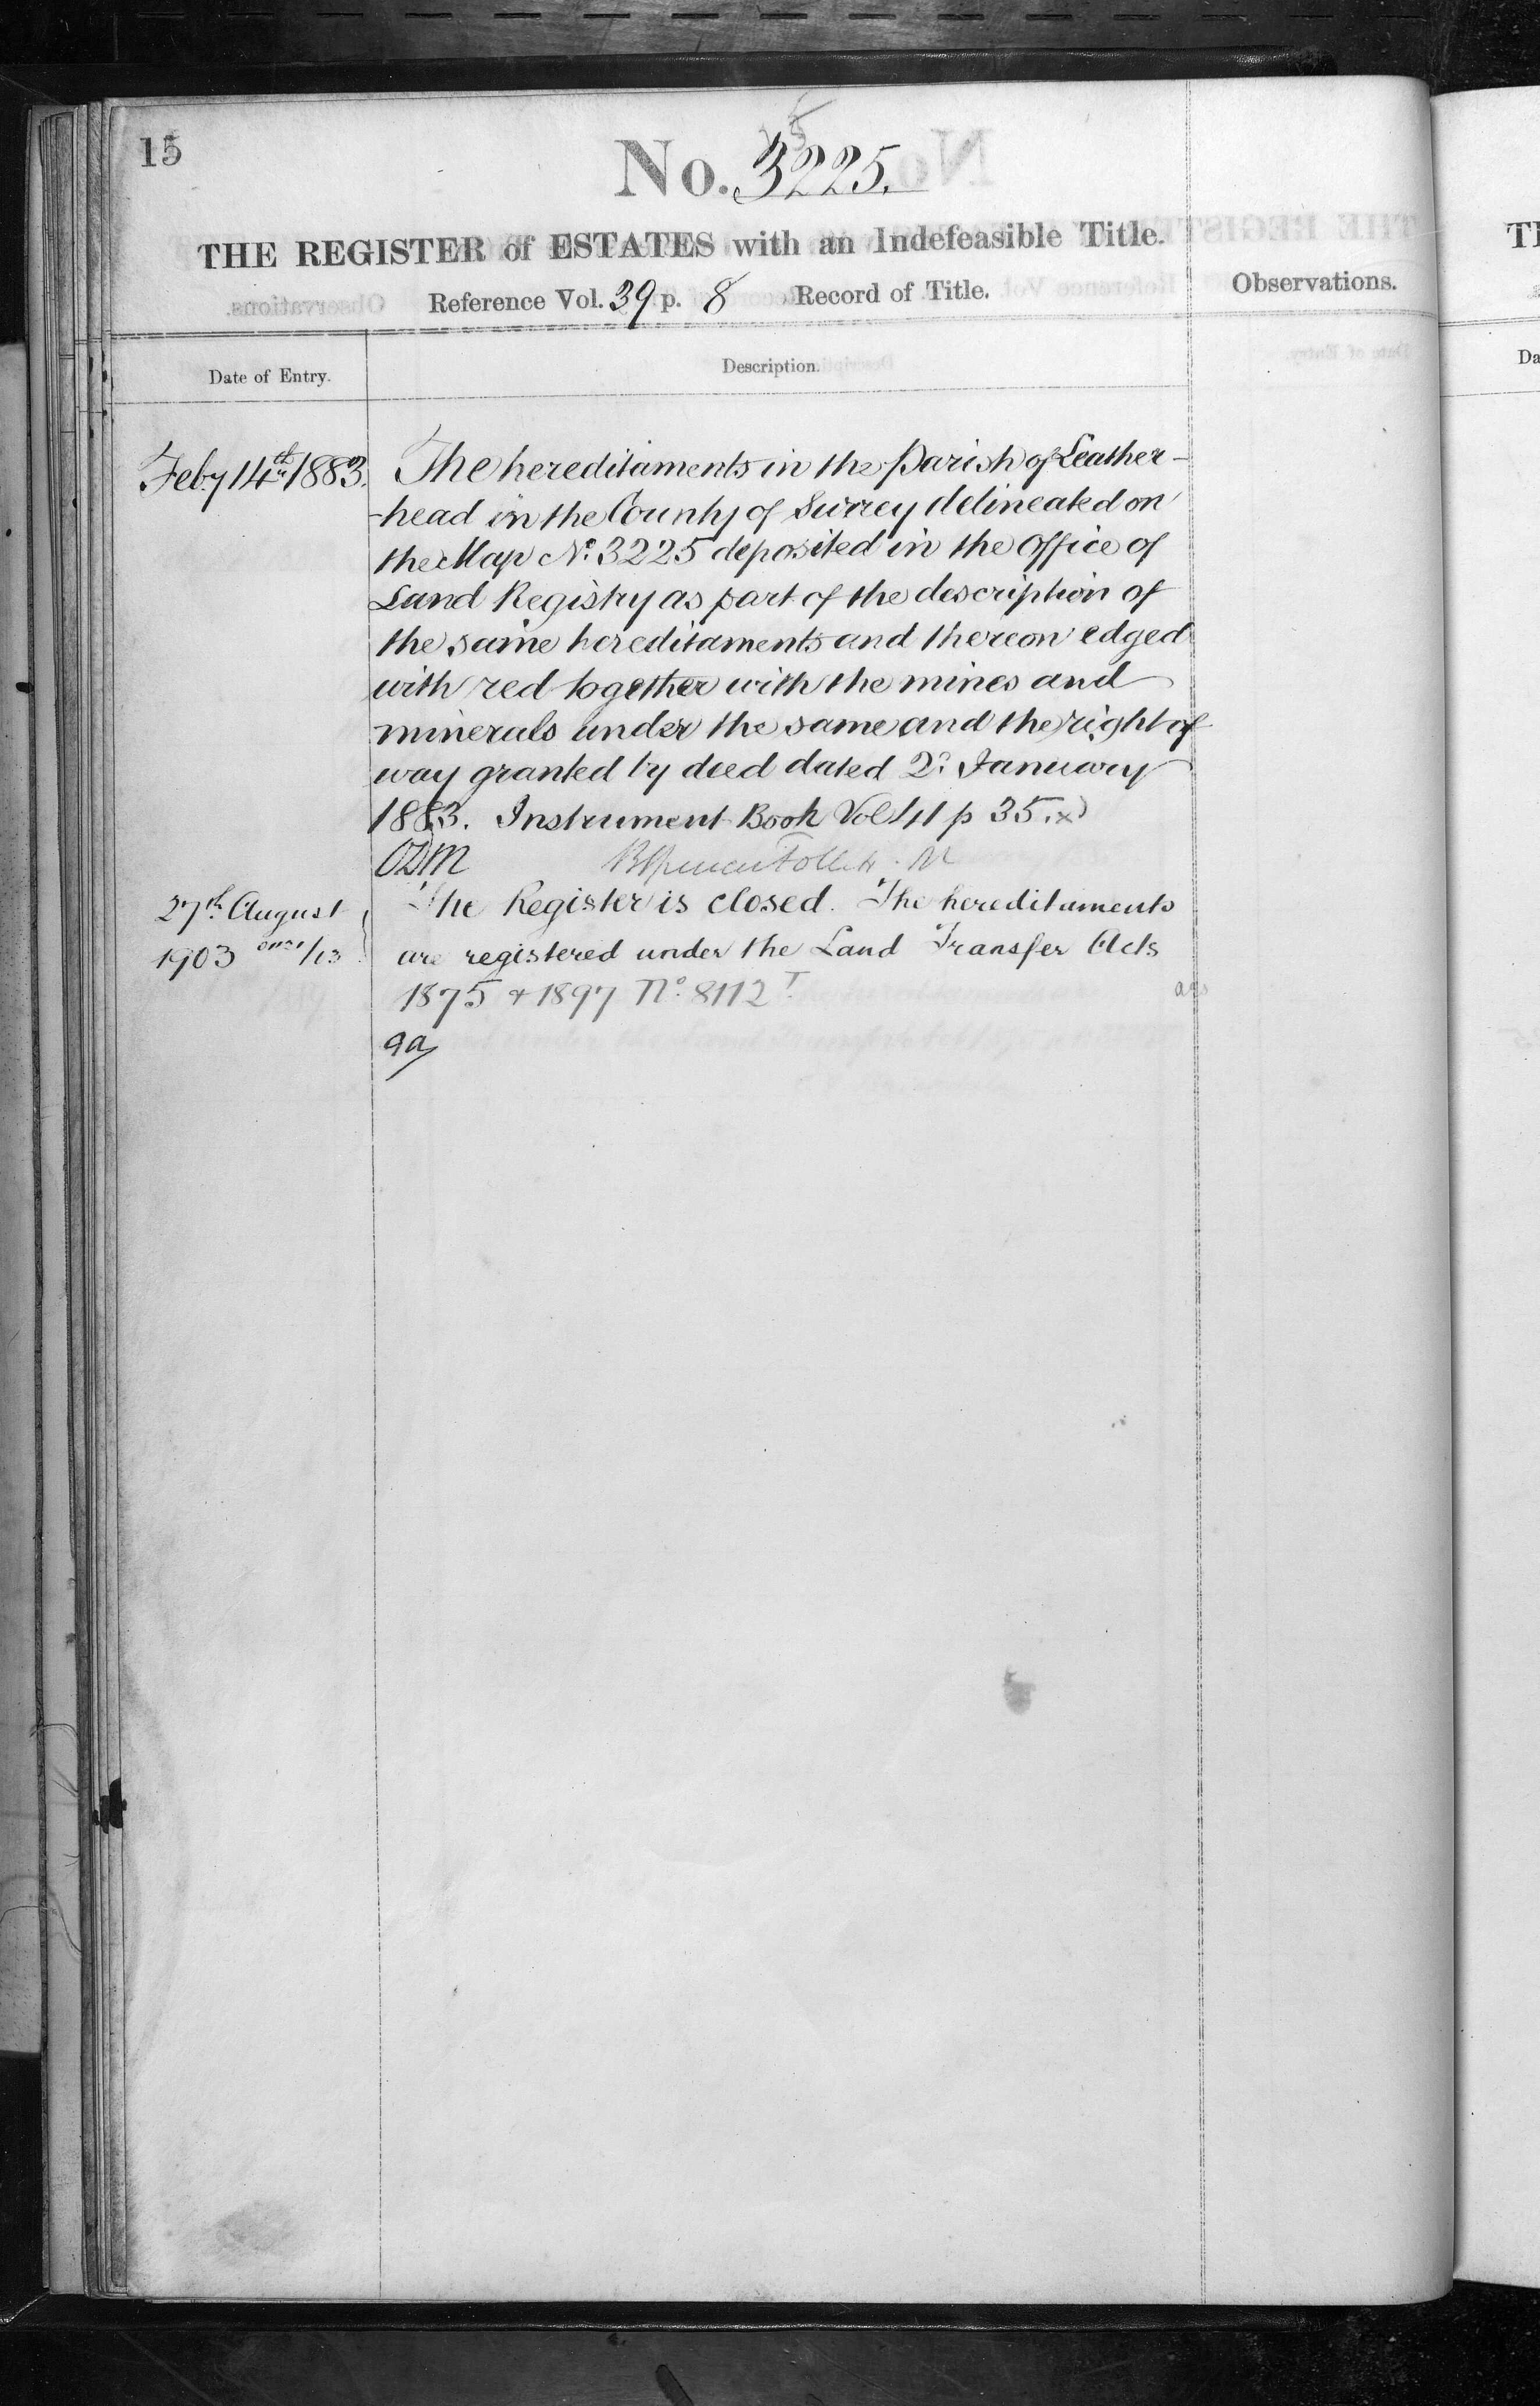 15
No. 3225.
THE REGISTER of ESTATES with an Indefeasible Title.
Reference Vol. 39 p. 8 Record of Title.
Observations.
Date of Entry.
Description.
Feby 14th 1883.
The hereditaments in the Parish of Leather-
-head in the County of Surrey delineated on
the Map No. 3225 deposited in the Office of
Land Registry as part of the description of
the same hereditaments and thereon edged
with red together with the mines and
minerals under the same and the right of
way granted by deed dated 2d January
1883. Instrument Book Vol 41 p 35.
ODM
27th August
1903
The Register is closed. The hereditaments
are registered under the Land Transfer Acts
1875 & 1897 No. 8112